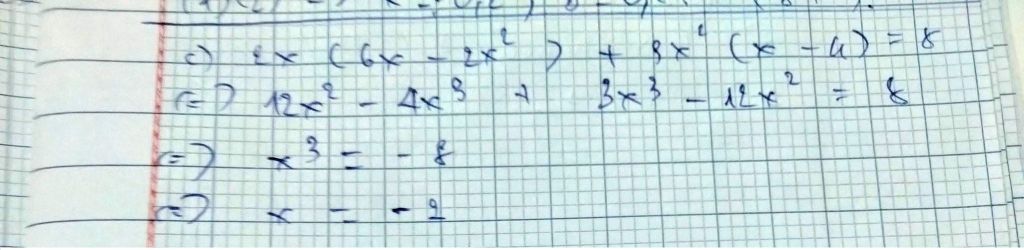 c) 2x (6x - 2x²) + 3x² (x - 4) = 8
(=) 12x² - 4x³ + 3x³ - 12x² = 8
(=) x³ = - 8
(=) x = - 2